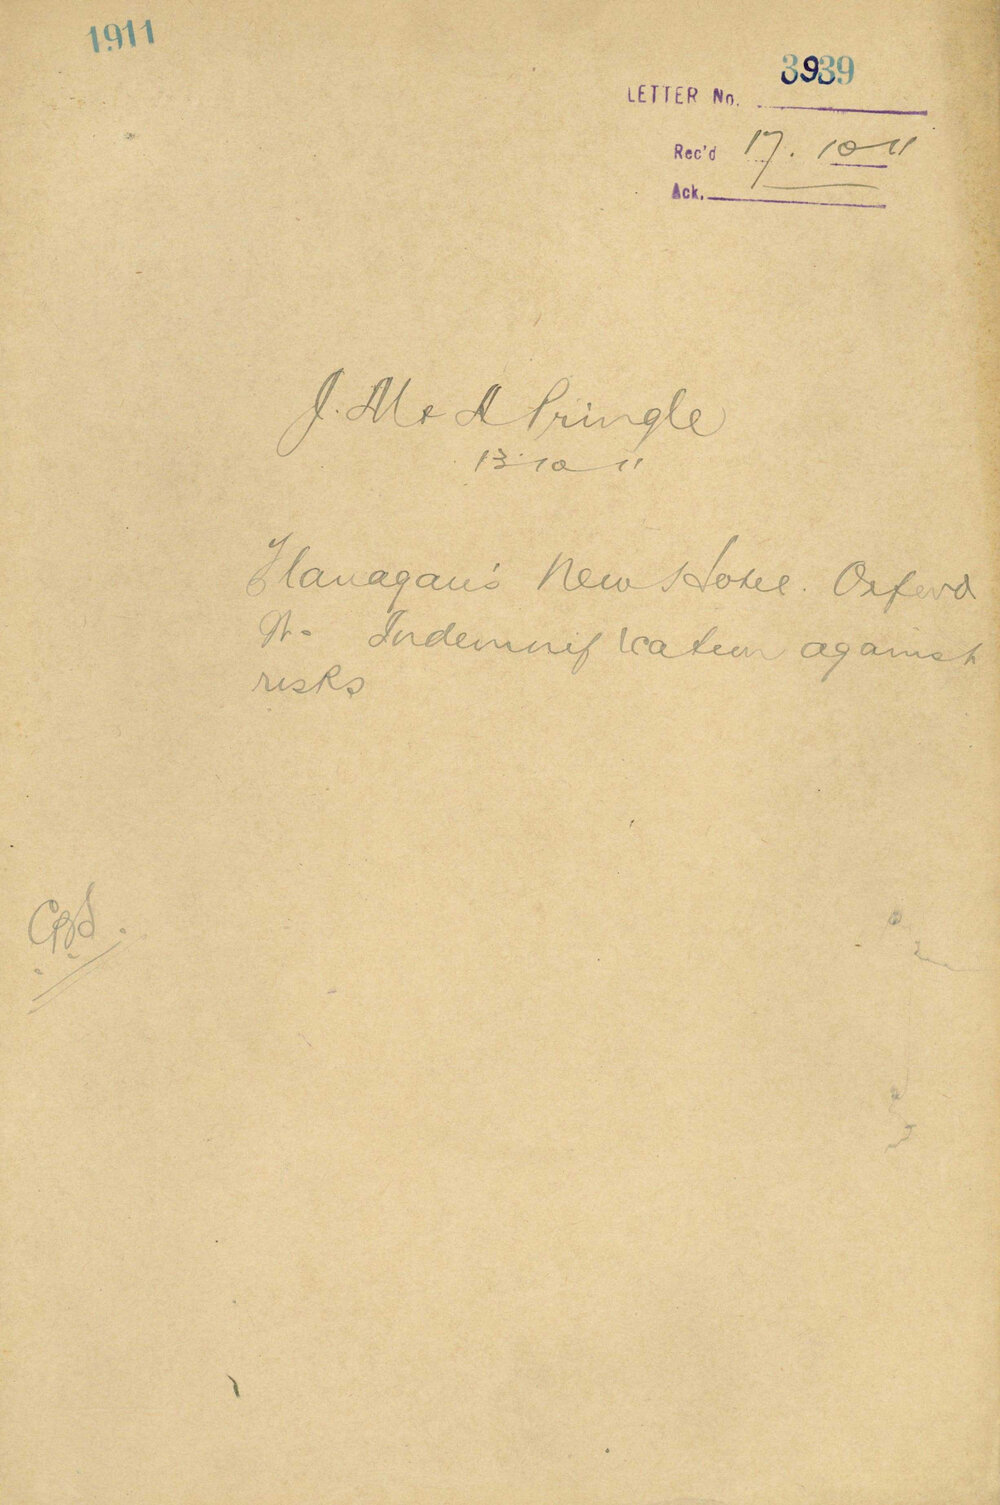 1911
3939
LETTER No.
Rec'd 17.10 11
Ack.
J. Mc A Pringle
13.10 11
Flanagan's New Hotel. Oxford
St. Indemnification against
risks